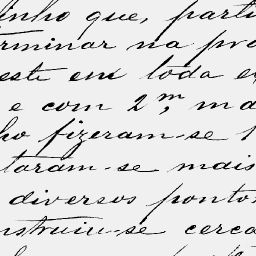 inho que, parti
rminar na pro
este em toda e
e com 2m, ma
ho fizeram-se
taram-se mais
diversos pontos
nstruiu-se cerca